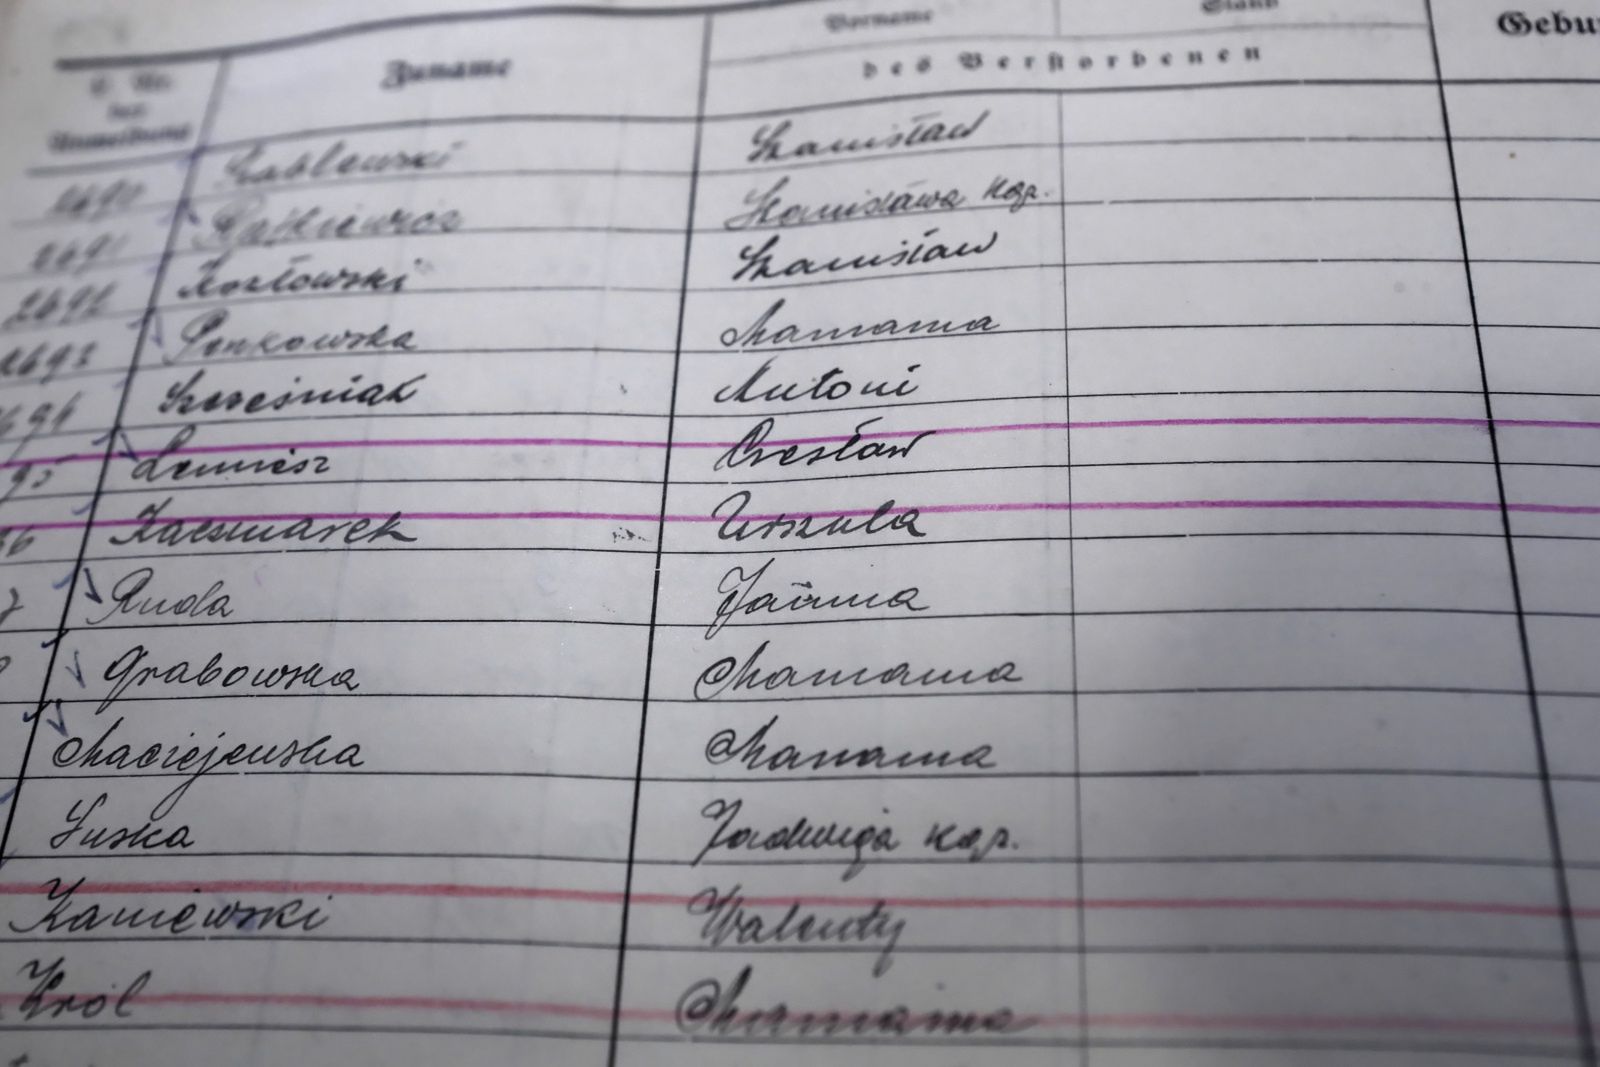 Zuname Vorname Stand Gebu
des Verstorbenen
2690 Stanisław
2691 Stanisława kgz.
2692 Kozłowski Stanisław
2693 Penkowska Marianna
Szcześniak Antoni
95 Lemiesz Czesław
36 Kaczmarek Urszula
7 Ruda Janina
Grabowska Marianna
Maciejewska Marianna
Suska Jadwiga kgz.
Kaniewski Walenty
Król Marianna